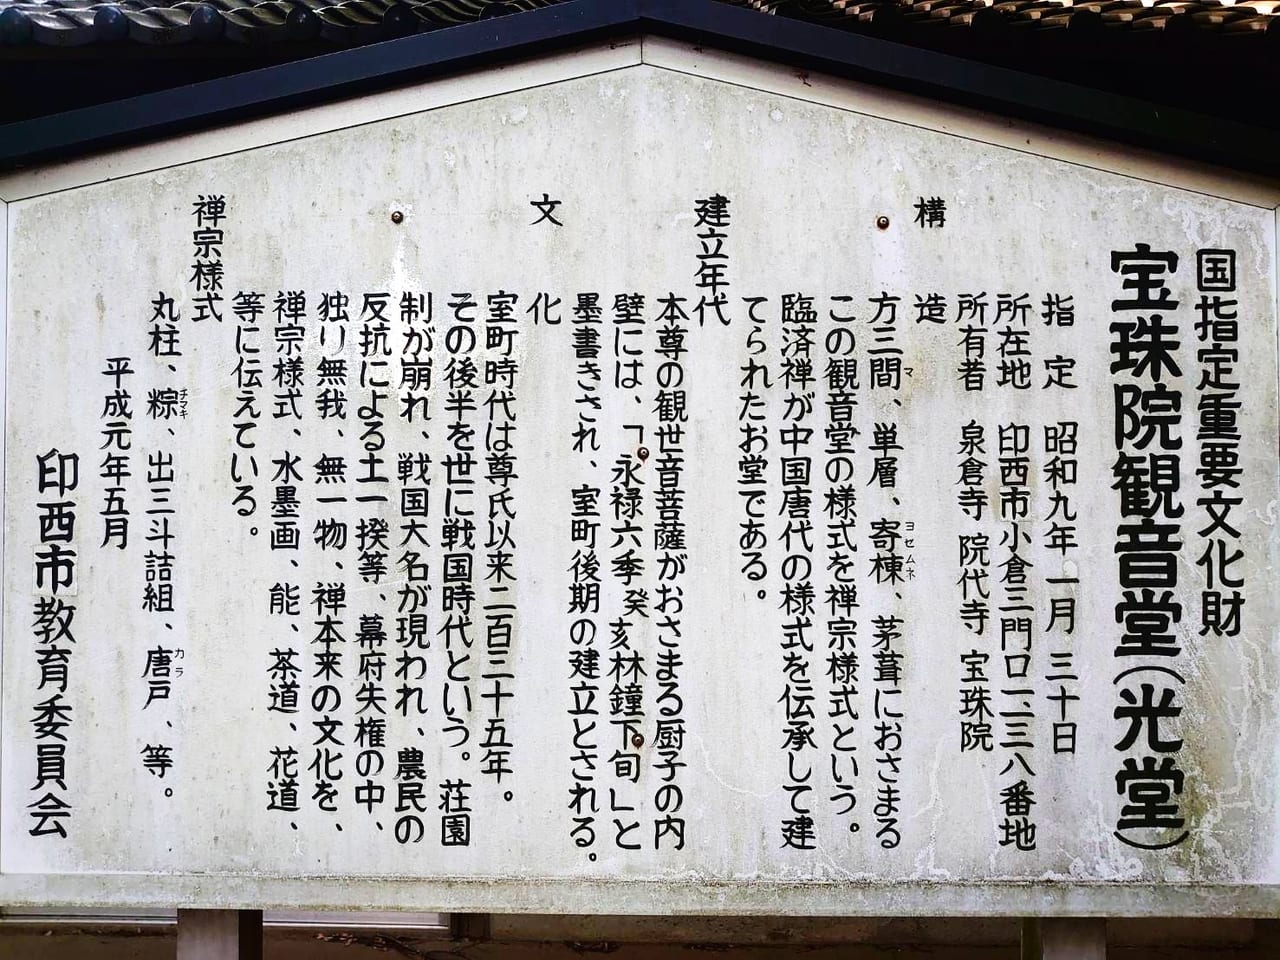 国指定重要文化財
宝珠院観音堂(光堂)
指定 昭和九年一月三十日
所在地 印西市小倉三門口一、二三八番地
所有者 泉倉寺 院代寺 宝珠院
構造
方三間、単層、寄棟、茅葺におさまる
マ
ヨセムネ
この観音堂の様式を禅宗様式という。
臨済禅が中国唐代の様式を伝承して建
てられたお堂である。
建立年代
本尊の観世音菩薩がおさまる厨子の内
壁には、「永禄六季癸亥林鐘下旬」と
墨書きされ、室町後期の建立とされる。
文化
室町時代は尊氏以来二百三十五年。
その後半を世に戦国時代という。荘園
制が崩れ、戦国大名が現われ、農民の
反抗による土一揆等、幕府失権の中、
独り無我、無一物、禅本来の文化を、
禅宗様式、水墨画、能、茶道、花道、
等に伝えている。
禅宗様式
丸柱、粽、出三斗詰組、唐戸、等。
チマキ
カラ
平成元年五月
印西市教育委員会